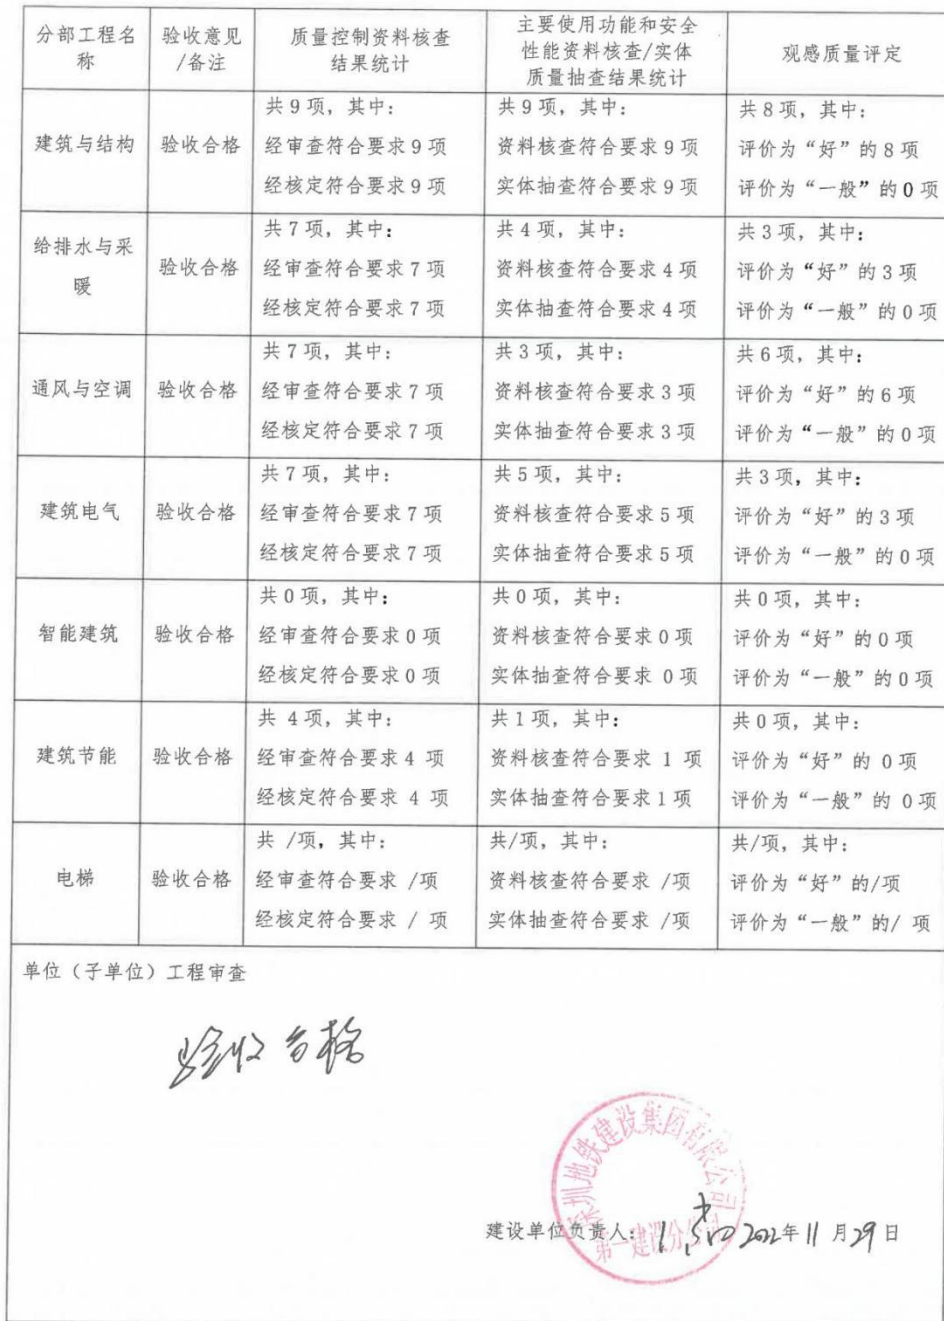 分部工程名称 验收意见/备注 质量控制资料核查结果统计 主要使用功能和安全性能资料核查/实体质量抽查结果统计 观感质量评定
建筑与结构 验收合格
共9项，其中：
经审查符合要求9项
经核定符合要求9项
共9项，其中：
资料核查符合要求9项
实体抽查符合要求9项
共8项，其中：
评价为“好”的8项
评价为“一般”的0项
给排水与采暖 验收合格
共7项，其中：
经审查符合要求7项
经核定符合要求7项
共4项，其中：
资料核查符合要求4项
实体抽查符合要求4项
共3项，其中：
评价为“好”的3项
评价为“一般”的0项
通风与空调 验收合格
共7项，其中：
经审查符合要求7项
经核定符合要求7项
共3项，其中：
资料核查符合要求3项
实体抽查符合要求3项
共6项，其中：
评价为“好”的6项
评价为“一般”的0项
建筑电气 验收合格
共7项，其中：
经审查符合要求7项
经核定符合要求7项
共5项，其中：
资料核查符合要求5项
实体抽查符合要求5项
共3项，其中：
评价为“好”的3项
评价为“一般”的0项
智能建筑 验收合格
共0项，其中：
经审查符合要求0项
经核定符合要求0项
共0项，其中：
资料核查符合要求0项
实体抽查符合要求 0项
共0项，其中：
评价为“好”的0项
评价为“一般”的0项
建筑节能 验收合格
共 4项，其中：
经审查符合要求4 项
经核定符合要求 4 项
共1项，其中：
资料核查符合要求 1 项
实体抽查符合要求1项
共0项，其中：
评价为“好”的 0项
评价为“一般”的 0项
电梯 验收合格
共 /项，其中：
经审查符合要求 /项
经核定符合要求 / 项
共/项，其中：
资料核查符合要求 /项
实体抽查符合要求 /项
共/项，其中：
评价为“好”的/项
评价为“一般”的/ 项
单位（子单位）工程审查
验收合格
深圳地铁建设集团有限公司
第一建设分公司
建设单位负责人： 2022年11月29日